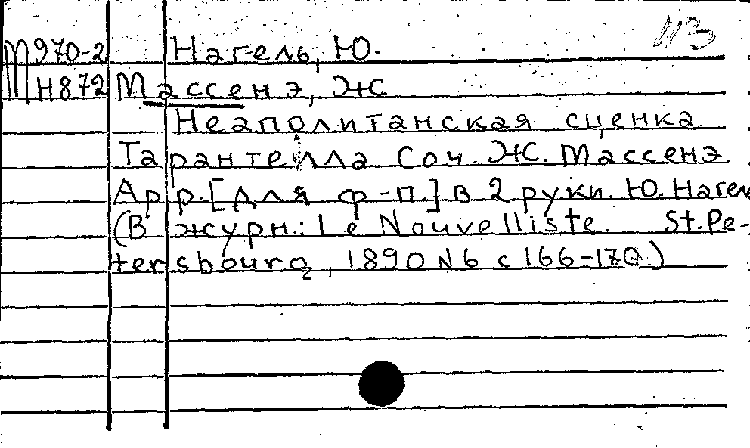 М970-2 Нагель, Ю. ИЗ
Н872 Массенэ, Ж
Неаполитанская сценка
Тарантелла Соч. Ж. Массенэ
Арр. [для ф-п.] в 2 руки. Ю. Нагель
(В журн.: Le Nouvelliste. St. Pe-
tersbourg, 1890 N6 с 166-170.)